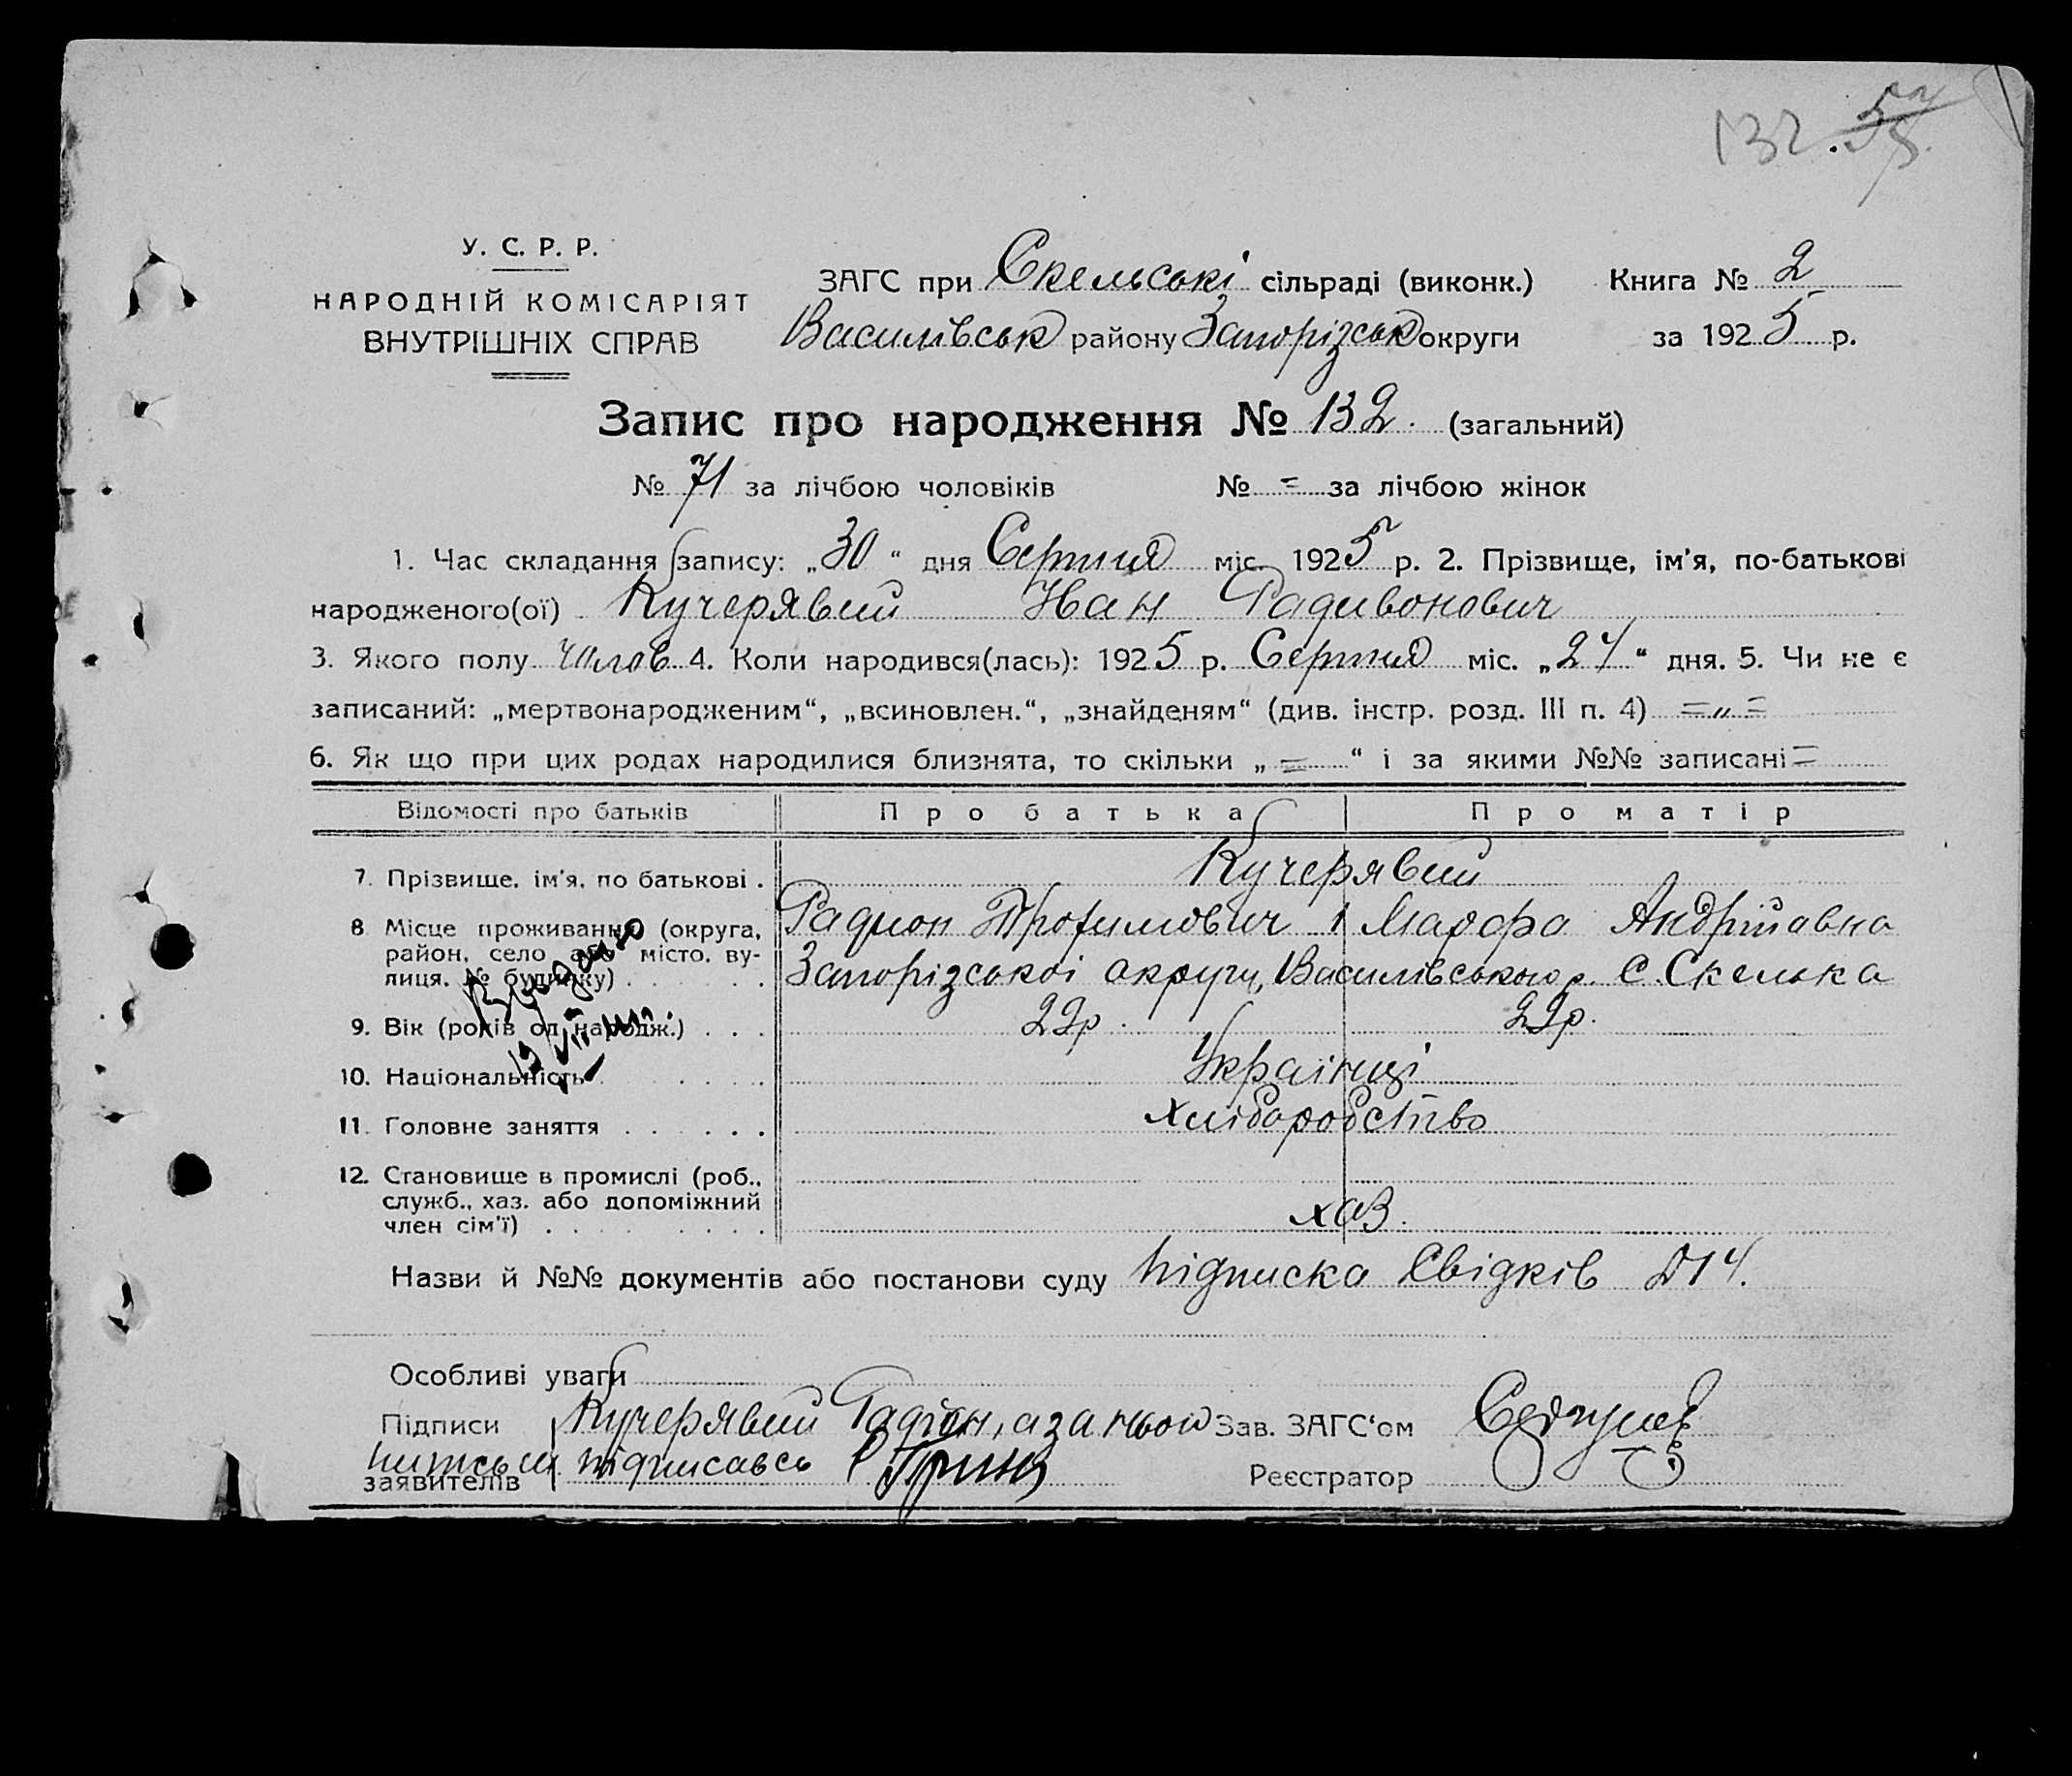 132. 
У. С. Р. Р.
НАРОДНІЙ КОМІСАРІЯТ
ВНУТРІШНІХ СПРАВ
ЗАГС при Скельські сільраді (виконк.) Книга № 2
Василівськ району Запорізськ округи за 1925 р.
Запис про народження № 132. (загальний)
№ 71 за лічбою чоловіків № = за лічбою жінок
1. Час складання запису: „30“ дня Серпня міс. 1925 р. 2. Прізвище, ім'я, по-батькові
народженого(ої) Кучерявий Іван Радивонович
3. Якого полу чолов 4. Коли народився(лась): 1925 р. Серпня міс. „24“ дня. 5. Чи не є
записаний: „мертвонародженим“, „всиновлен.“, „знайденям“ (див. інстр. розд. III п. 4) =„=
6. Як що при цих родах народилися близнята, то скільки „=“ і за якими №№ записані =
Відомості про батьків Про батька Про матір
7. Прізвище, ім'я, по батькові . Кучерявий
Радион Трохимович і Марфа Андріівна
8 Місце проживання (округа, район, село або місто, вулиця, № будинку) . . . . . . Запорізськоі округи, Василівського р. С. Скелька
9. Вік (років од народж.) . . . 22р. 22р.
10. Національність . . . . . Украінці
11. Головне заняття . . . . . . хліборобство
12. Становище в промислі (роб., служб., хаз. або допоміжний член сім'ї) . . . . . . . . хаз.
Назви й №№ документів або постанови суду підписка свідків
Особливі уваги
Підписи Кучерявий Радіон, а за Зав. ЗАГС'ом
заявителів підписавсь Реєстратор